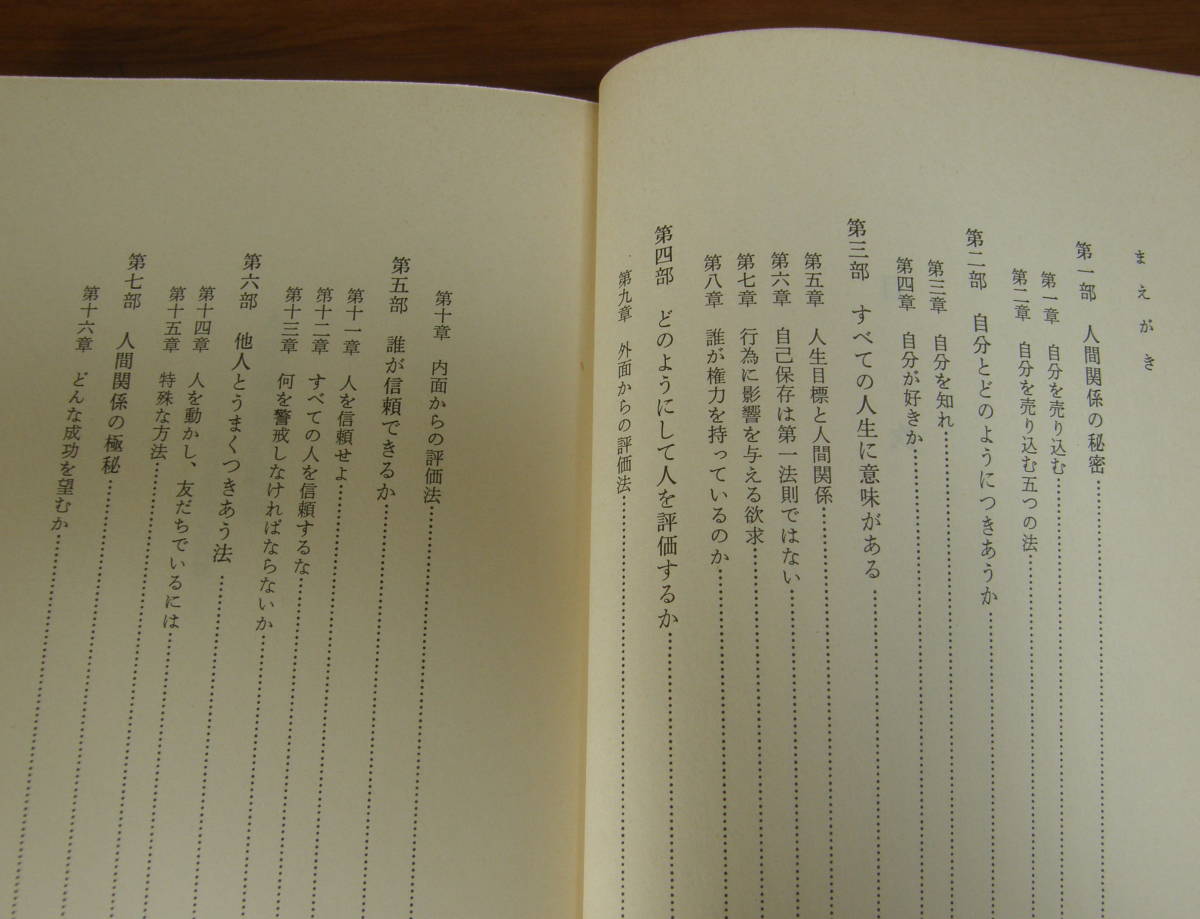 まえがき
第一部 人間関係の秘密
第一章 自分を売り込む
第二章 自分を売り込む五つの法
第二部 自分とどのようにつきあうか
第三章 自分を知れ
第四章 自分が好きか
第三部 すべての人生に意味がある
第五章 人生目標と人間関係
第六章 自己保存は第一法則ではない
第七章 行為に影響を与える欲求
第八章 誰が権力を持っているのか
第四部 どのようにして人を評価するか
第九章 外面からの評価法
第十章 内面からの評価法
第五部 誰が信頼できるか
第十一章 人を信頼せよ
第十二章 すべての人を信頼するな
第十三章 何を警戒しなければならないか
第六部 他人とうまくつきあう法
第十四章 人を動かし、友だちでいるには
第十五章 特殊な方法
第七部 人間関係の極秘
第十六章 どんな成功を望むか